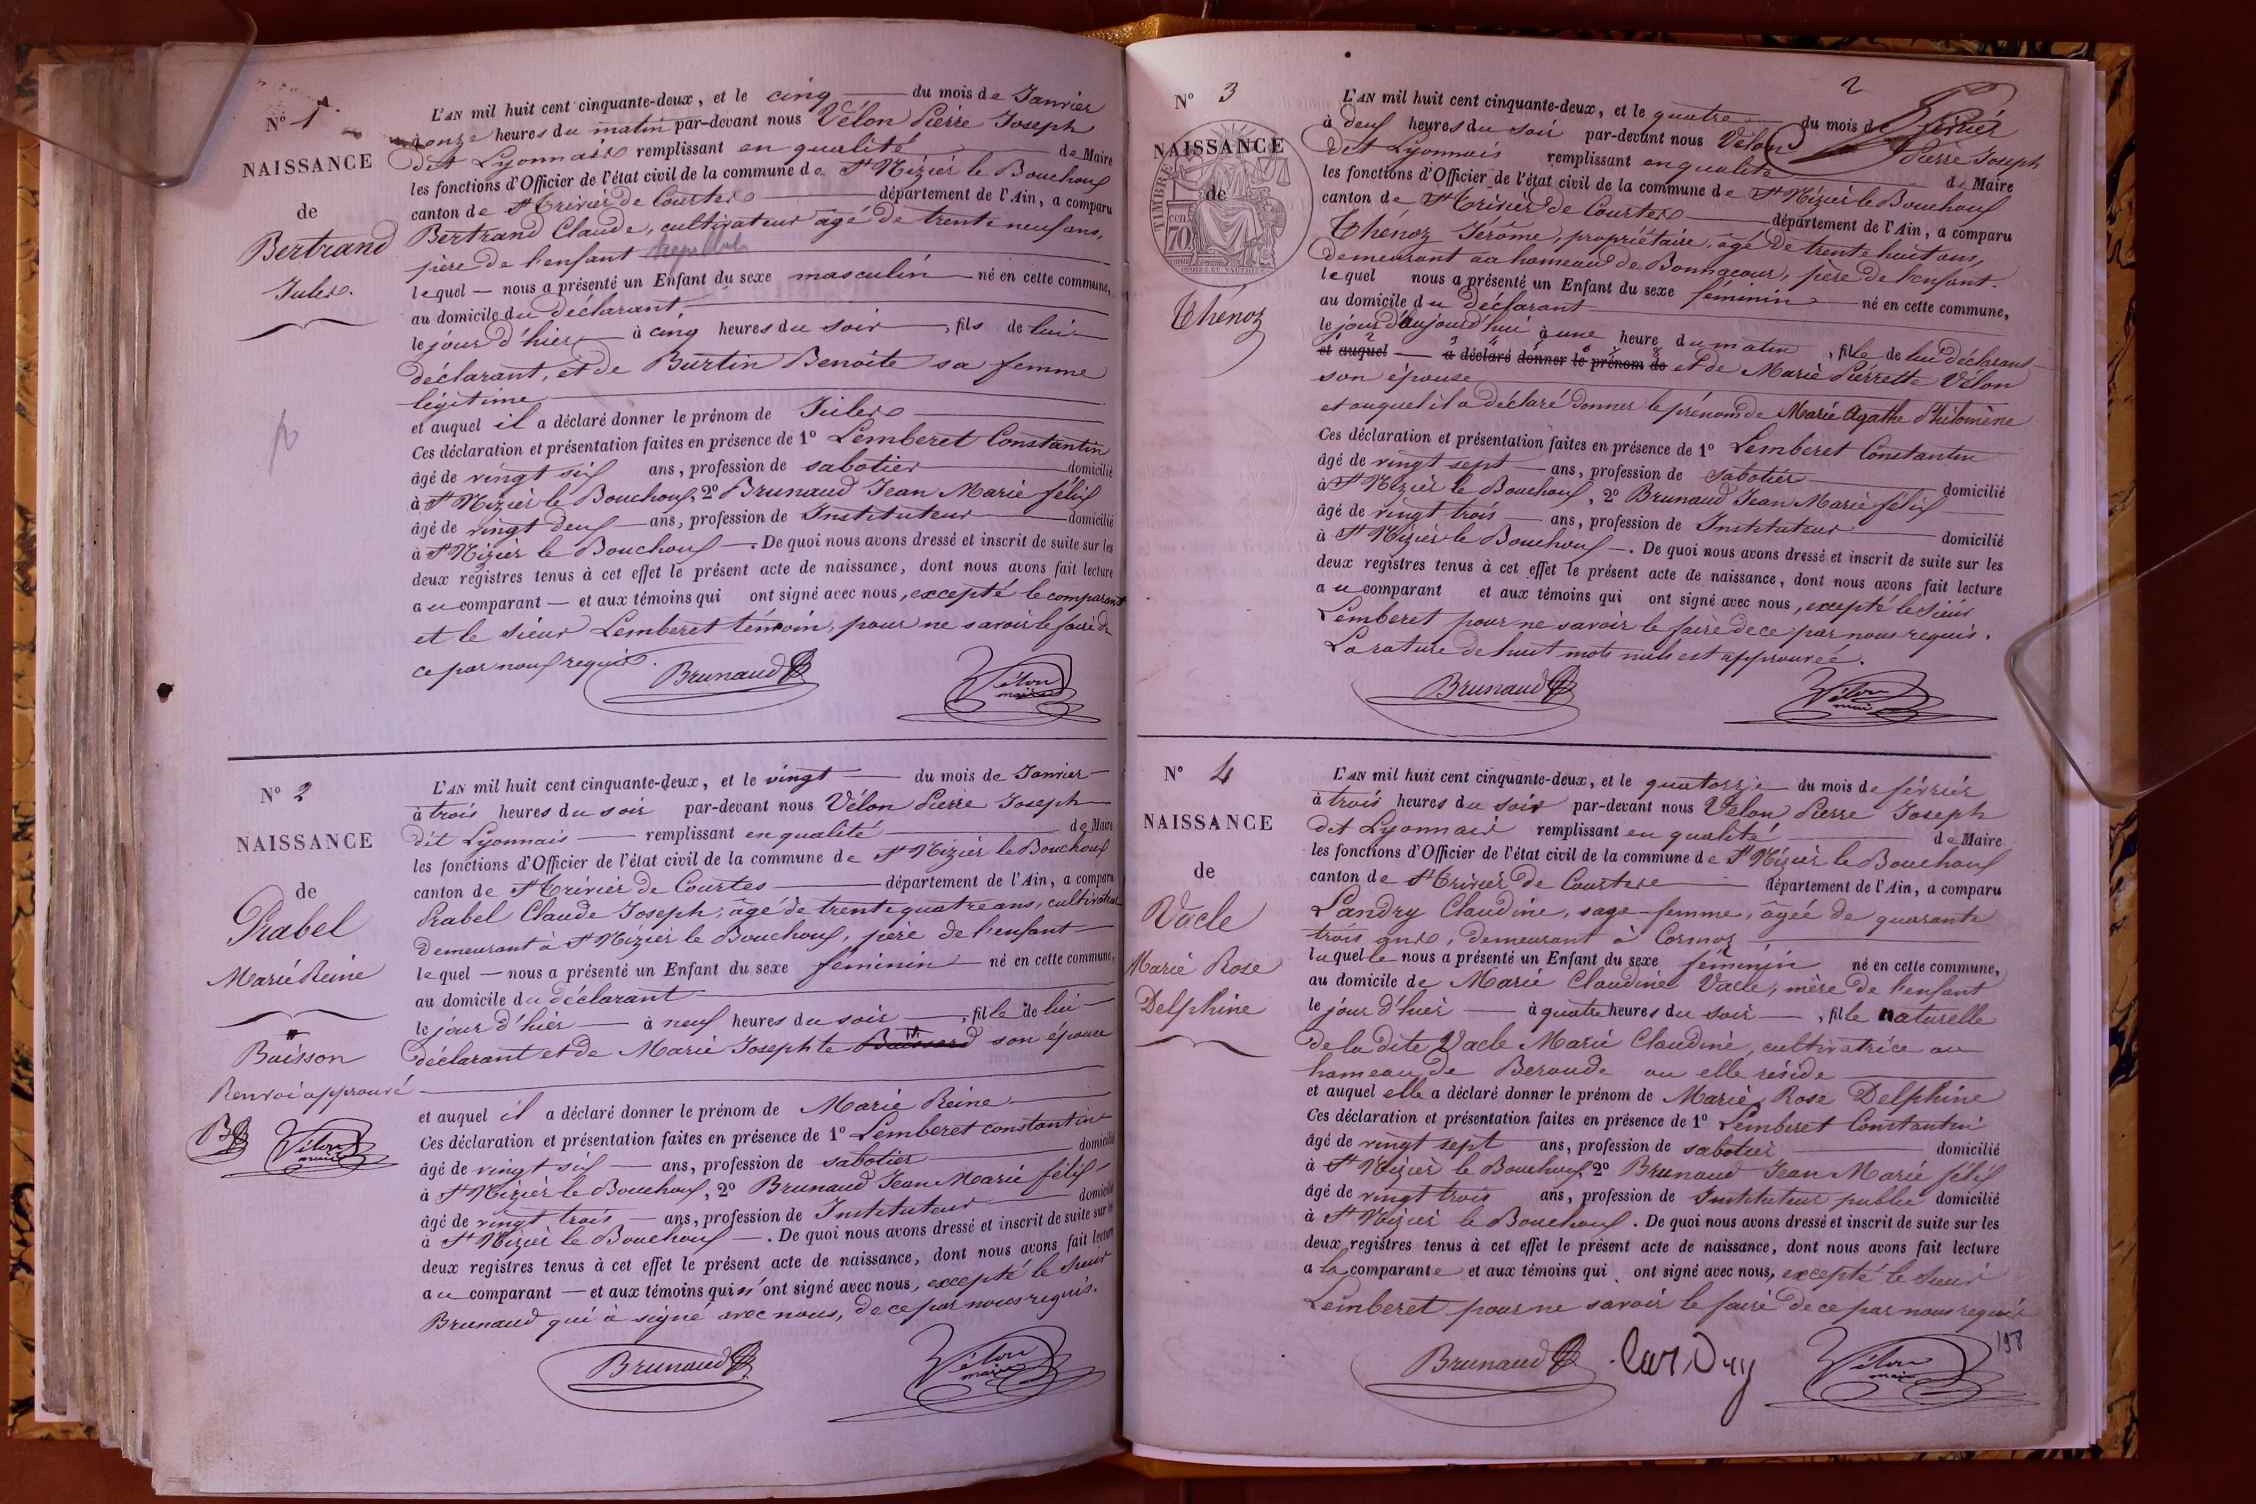 N° 1
NAISSANCE
de
Bertrand
Jules.
L'AN mil huit cent cinquante-deux, et le cinq du mois de Janvier
à onze heures du matin par-devant nous Vélon Pierre Joseph
dit Lyonnais remplissant en qualité de Maire
les fonctions d'Officier de l'état civil de la commune de St Nizier le Bouchoux
canton de St Trivier de Courtes département de l'Ain, a comparu
Bertrand Claude, cultivateur âgé de trente neuf ans,
père de l'enfant
lequel — nous a présenté un Enfant du sexe masculin né en cette commune,
au domicile du déclarant
le jour d'hier à cinq heures du soir, fils de lui
déclarant, et de Burtin Benoite sa femme
légitime
et auquel il a déclaré donner le prénom de Jules
Ces déclaration et présentation faites en présence de 1° Lemberet Constantin
âgé de vingt six ans, profession de sabotier domicilié
à St Nizier le Bouchoux, 2° Brunaud Jean Marie félix
âgé de vingt deux ans, profession de Instituteur domicilié
à St Nizier le Bouchoux —. De quoi nous avons dressé et inscrit de suite sur les
deux registres tenus à cet effet le présent acte de naissance, dont nous avons fait lecture
au comparant — et aux témoins qui ont signé avec nous, excepté le comparant
et le sieur Lemberet témoin, pour ne savoir le faire de
ce par nous requis.
Brunaud
Vélon
maire
N° 2
NAISSANCE
de
Prabel
Marie Reine
Buisson
Renvoi approuvé
B
Vélon
maire
L'AN mil huit cent cinquante-deux, et le vingt du mois de Janvier
à trois heures du soir par-devant nous Vélon Pierre Joseph
dit Lyonnais remplissant en qualité de Maire
les fonctions d'Officier de l'état civil de la commune de St Nizier le Bouchoux
canton de St Trivier de Courtes département de l'Ain, a comparu
Prabel Claude Joseph, âgé de trente quatre ans, cultivateur
demeurant à St Nizier le Bouchoux, père de l'enfant
lequel — nous a présenté un Enfant du sexe féminin né en cette commune,
au domicile du déclarant
le jour d'hier à neuf heures du soir, fille de lui
déclarant et de Marie Josephte son épouse
et auquel il a déclaré donner le prénom de Marie Reine
Ces déclaration et présentation faites en présence de 1° Lemberet constantin
âgé de vingt six ans, profession de sabotier domicilié
à St Nizier le Bouchoux, 2° Brunaud Jean Marie félix
âgé de vingt trois ans, profession de Instituteur domicilié
à St Nizier le Bouchoux —. De quoi nous avons dressé et inscrit de suite sur les
deux registres tenus à cet effet le présent acte de naissance, dont nous avons fait lecture
au comparant — et aux témoins qui n'ont signé avec nous, excepté le Sieur
Brunaud qui à signé avec nous, de ce par nous requis.
Brunaud
Vélon
maire
2
N° 3
NAISSANCE
de
TIMBRE
70
Thénoz
L'AN mil huit cent cinquante-deux, et le quatre du mois de Février
à deux heures du soir par-devant nous Vélon Pierre Joseph
dit Lyonnais remplissant en qualité de Maire
les fonctions d'Officier de l'état civil de la commune de St Nizier le Bouchoux
canton de St Trivier de Courtes département de l'Ain, a comparu
Thénoz Jérôme, propriétaire, âgé de trente huit ans,
demeurant au hameau de Bonnacour, père de l'enfant.
lequel nous a présenté un Enfant du sexe féminin né en cette commune,
au domicile du déclarant
le jour d'aujourd'hui à une heure du matin, fille de lui déclarant
et auquel — a déclaré donner le prénom de et de Marie Pierrette Vélon
son épouse
et auquel il a déclaré donner le prénom de Marie Agathe Philomène
Ces déclaration et présentation faites en présence de 1° Lemberet Constantin
âgé de vingt sept ans, profession de sabotier domicilié
à St Nizier le Bouchoux, 2° Brunaud Jean Marie félix
âgé de vingt trois ans, profession de Instituteur domicilié
à St Nizier le Bouchoux —. De quoi nous avons dressé et inscrit de suite sur les
deux registres tenus à cet effet le présent acte de naissance, dont nous avons fait lecture
au comparant et aux témoins qui ont signé avec nous, excepté le sieur
Lemberet pour ne savoir le faire de ce par nous requis.
La rature de huit mots nuls est approuvée.
Brunaud
Vélon
maire
N° 4
NAISSANCE
de
Vacle
Marie Rose
Delphine
L'AN mil huit cent cinquante-deux, et le quatorze du mois de février
à trois heures du soir par-devant nous Vélon Pierre Joseph
dit Lyonnais remplissant en qualité de Maire
les fonctions d'Officier de l'état civil de la commune de St Nizier le Bouchoux
canton de St Trivier de Courtes département de l'Ain, a comparu
Landry Claudine, sage-femme, âgée de quarante
trois ans, demeurant à Cormoz
laquelle nous a présenté un Enfant du sexe féminin né en cette commune,
au domicile de Marie Claudine Vacle, mère de l'enfant
le jour d'hier à quatre heures du soir, fille naturelle
de la dite Vacle Marie Claudine, cultivatrice au
hameau de Beroude ou elle réside
et auquel elle a déclaré donner le prénom de Marie Rose Delphine
Ces déclaration et présentation faites en présence de 1° Lemberet Constantin
âgé de vingt sept ans, profession de sabotier domicilié
à St Nizier le Bouchoux, 2° Brunaud Jean Marie félix
âgé de vingt trois ans, profession de Instituteur public domicilié
à St Nizier le Bouchoux. De quoi nous avons dressé et inscrit de suite sur les
deux registres tenus à cet effet le présent acte de naissance, dont nous avons fait lecture
a la comparante et aux témoins qui ont signé avec nous, excepté le sieur
Lemberet pour ne savoir le faire de ce par nous requis
Brunaud
Landry
Vélon
maire
198